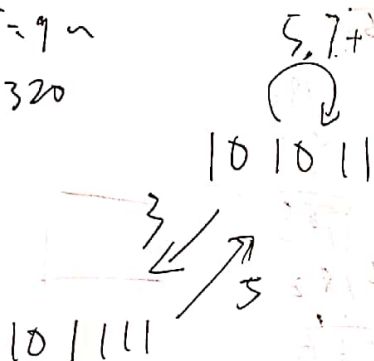 = 9
320
5,7+
101011
3
5
101111